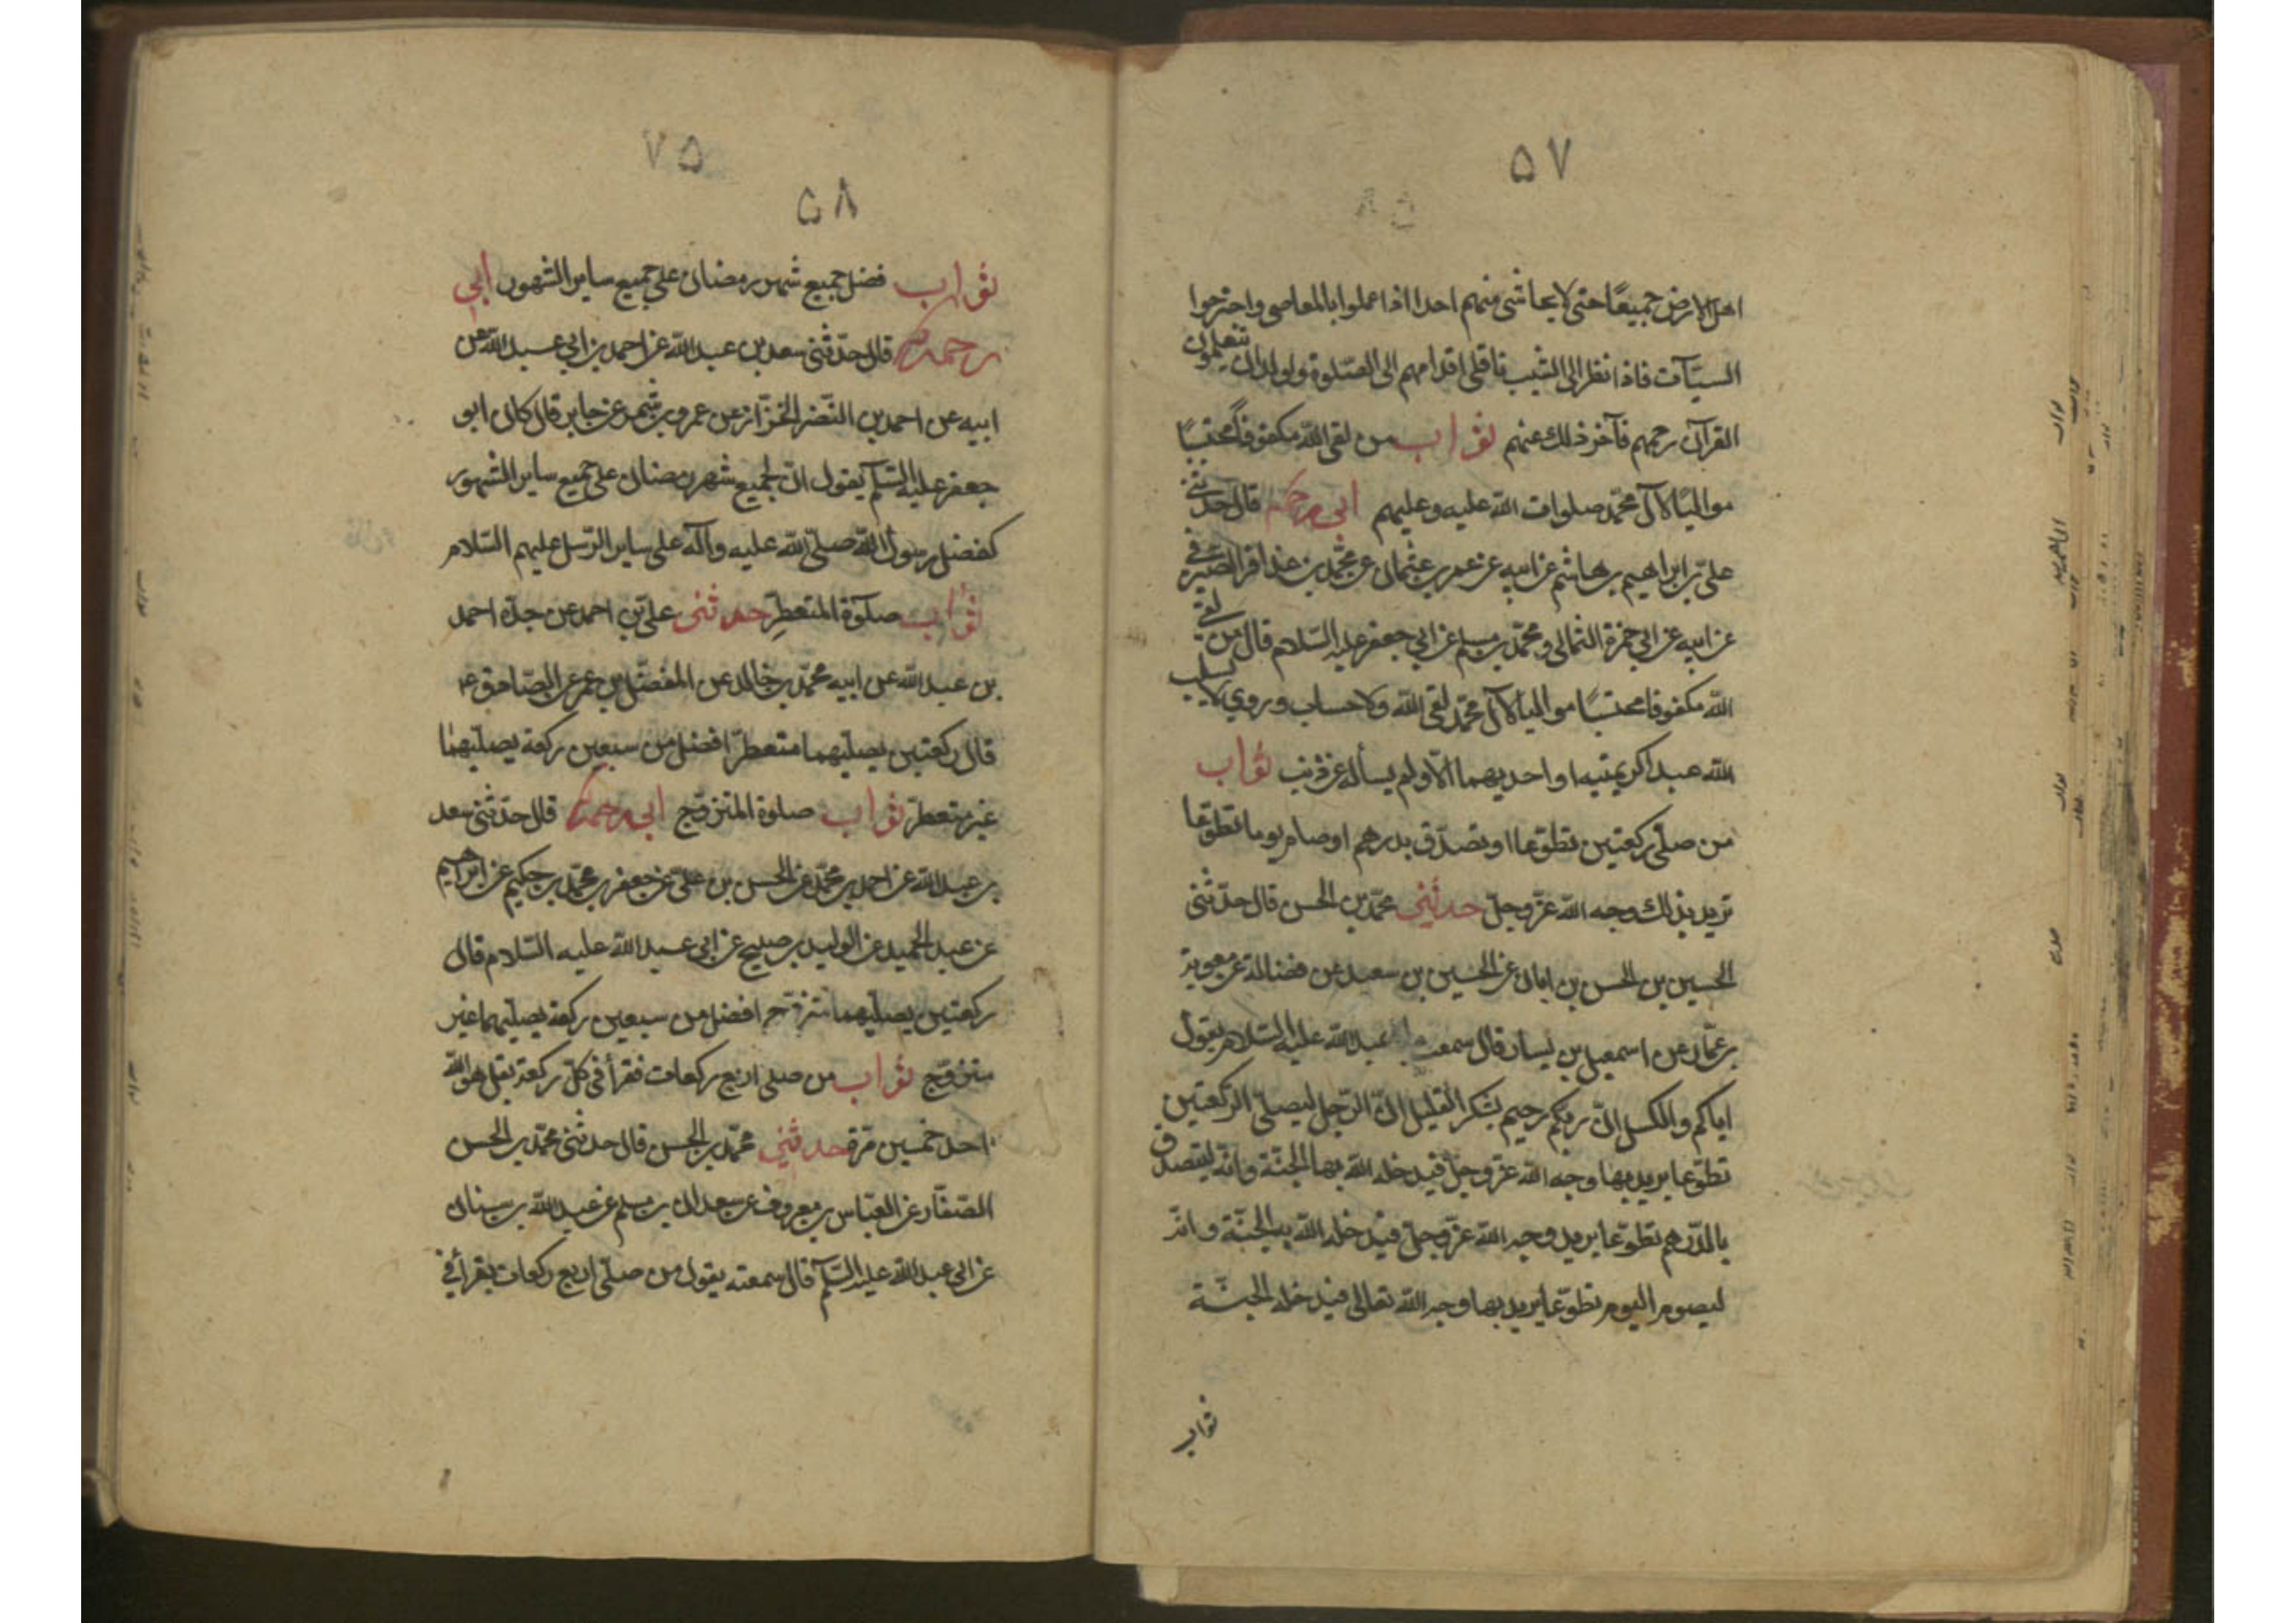 ۵۷
اهل الارض جميعًا حتى لا يحاشى منهم احدا اذا عملوا بالمعاصى واجترحوا
السيّآت فاذا نظر الى الشيب ناقلى اقدامهم الى الصّلوة والولدان يتعلمون
القرآن رحمهم فآخر ذلك عنهم ثواب من لقى الله مكفوفًا محتسبًا
مواليًا لآل محمّد صلوات الله عليه وعليهم ابى رحمه الله قال حدّثنى
علىّ بن ابراهيم بن هاشم عن ابيه عن عمر بن عثمان عن محمّد بن عذافر الصيرفى
عن ابيه عن ابى حمزة الثمالى ومحمّد بن مسلم عن ابى جعفر عليه السّلام قال من لقى
الله مكفوفا محتسبًا مواليا لآل محمّد لقى الله ولا حساب وروى لا يسلب
الله عبدا كريمتيه او احديهما الّا ولم يسأله عن ذنب ثواب
من صلّى ركعتين تطوّعا او تصدّق بدرهم او صام يوما تطوّعا
تريد بذلك وجه الله عزّ وجلّ حدثنى محمّد بن الحسن قال حدّثنى
الحسين بن الحسن بن ابان عن الحسين بن سعيد عن فضالة عن معوية
بن عمّار عن اسمعيل بن يسار قال سمعت ابا عبد الله عليه السّلام يقول
اياكم والكسل انّ ربّكم رحيم يشكر القليل انّ الرّجل ليصلّى الركعتين
تطوّعا يريد بها وجه الله عزّ وجلّ فيدخله الله بها الجنّة وانّه ليتصدق
بالدّرهم تطوّعا يريد وجه الله عزّ وجلّ فيدخله الله به الجنّة وانّه
ليصوم اليوم تطوّعا يريد بها وجه الله تعالى فيدخله الجنّة
ثواب
۵۸
ثواب فضل جميع شهر رمضان على جميع ساير الشهور ابى
رحمه الله قال حدّثنى سعد بن عبد الله عن احمد بن ابى عبد الله عن
ابيه عن احمد بن النّضر الخزّاز عن عمرو بن شمر عن جابر قال كان ابو
جعفر عليه السّلم يقول انّ لجميع شهر رمضان على جميع ساير الشهور
كفضل رسول الله صلّى الله عليه وآله على ساير الرّسل عليهم السّلام
ثواب صلوة المتعطّر حدثنى علىّ بن احمد عن جدّه احمد
بن عبد الله عن ابيه محمّد بن خالد عن المفضّل بن عمر عن الصّادق ع
قال ركعتين يصلّيهما متعطّرًا افضل من سبعين ركعة يصلّيهما
غير متعطّر ثواب صلوة المتزوّج ابى رحمه الله قال حدّثنى سعد
بن عبد الله عن احمد بن محمّد عن الحسن بن علىّ عن جعفر بن محمّد بن حكيم عن ابراهيم
عن عبد الحميد عن الوليد بن صبيح عن ابى عبد الله عليه السّلام قال
ركعتين يصلّيهما متزوّج افضل من سبعين ركعة يصلّيهما غير
متزوّج ثواب من صلى اربع ركعات فقرأ فى كلّ ركعة بقل هو الله
احد خمسين مرّة حدثنى محمّد بن الحسن قال حدثنى محمّد بن الحسن
الصّفّار عن العبّاس بن معروف عن سعدان بن مسلم عن عبد الله بن سنان
عن ابى عبد الله عليه السّلم قال سمعته يقول من صلّى اربع ركعات يقرأ فى